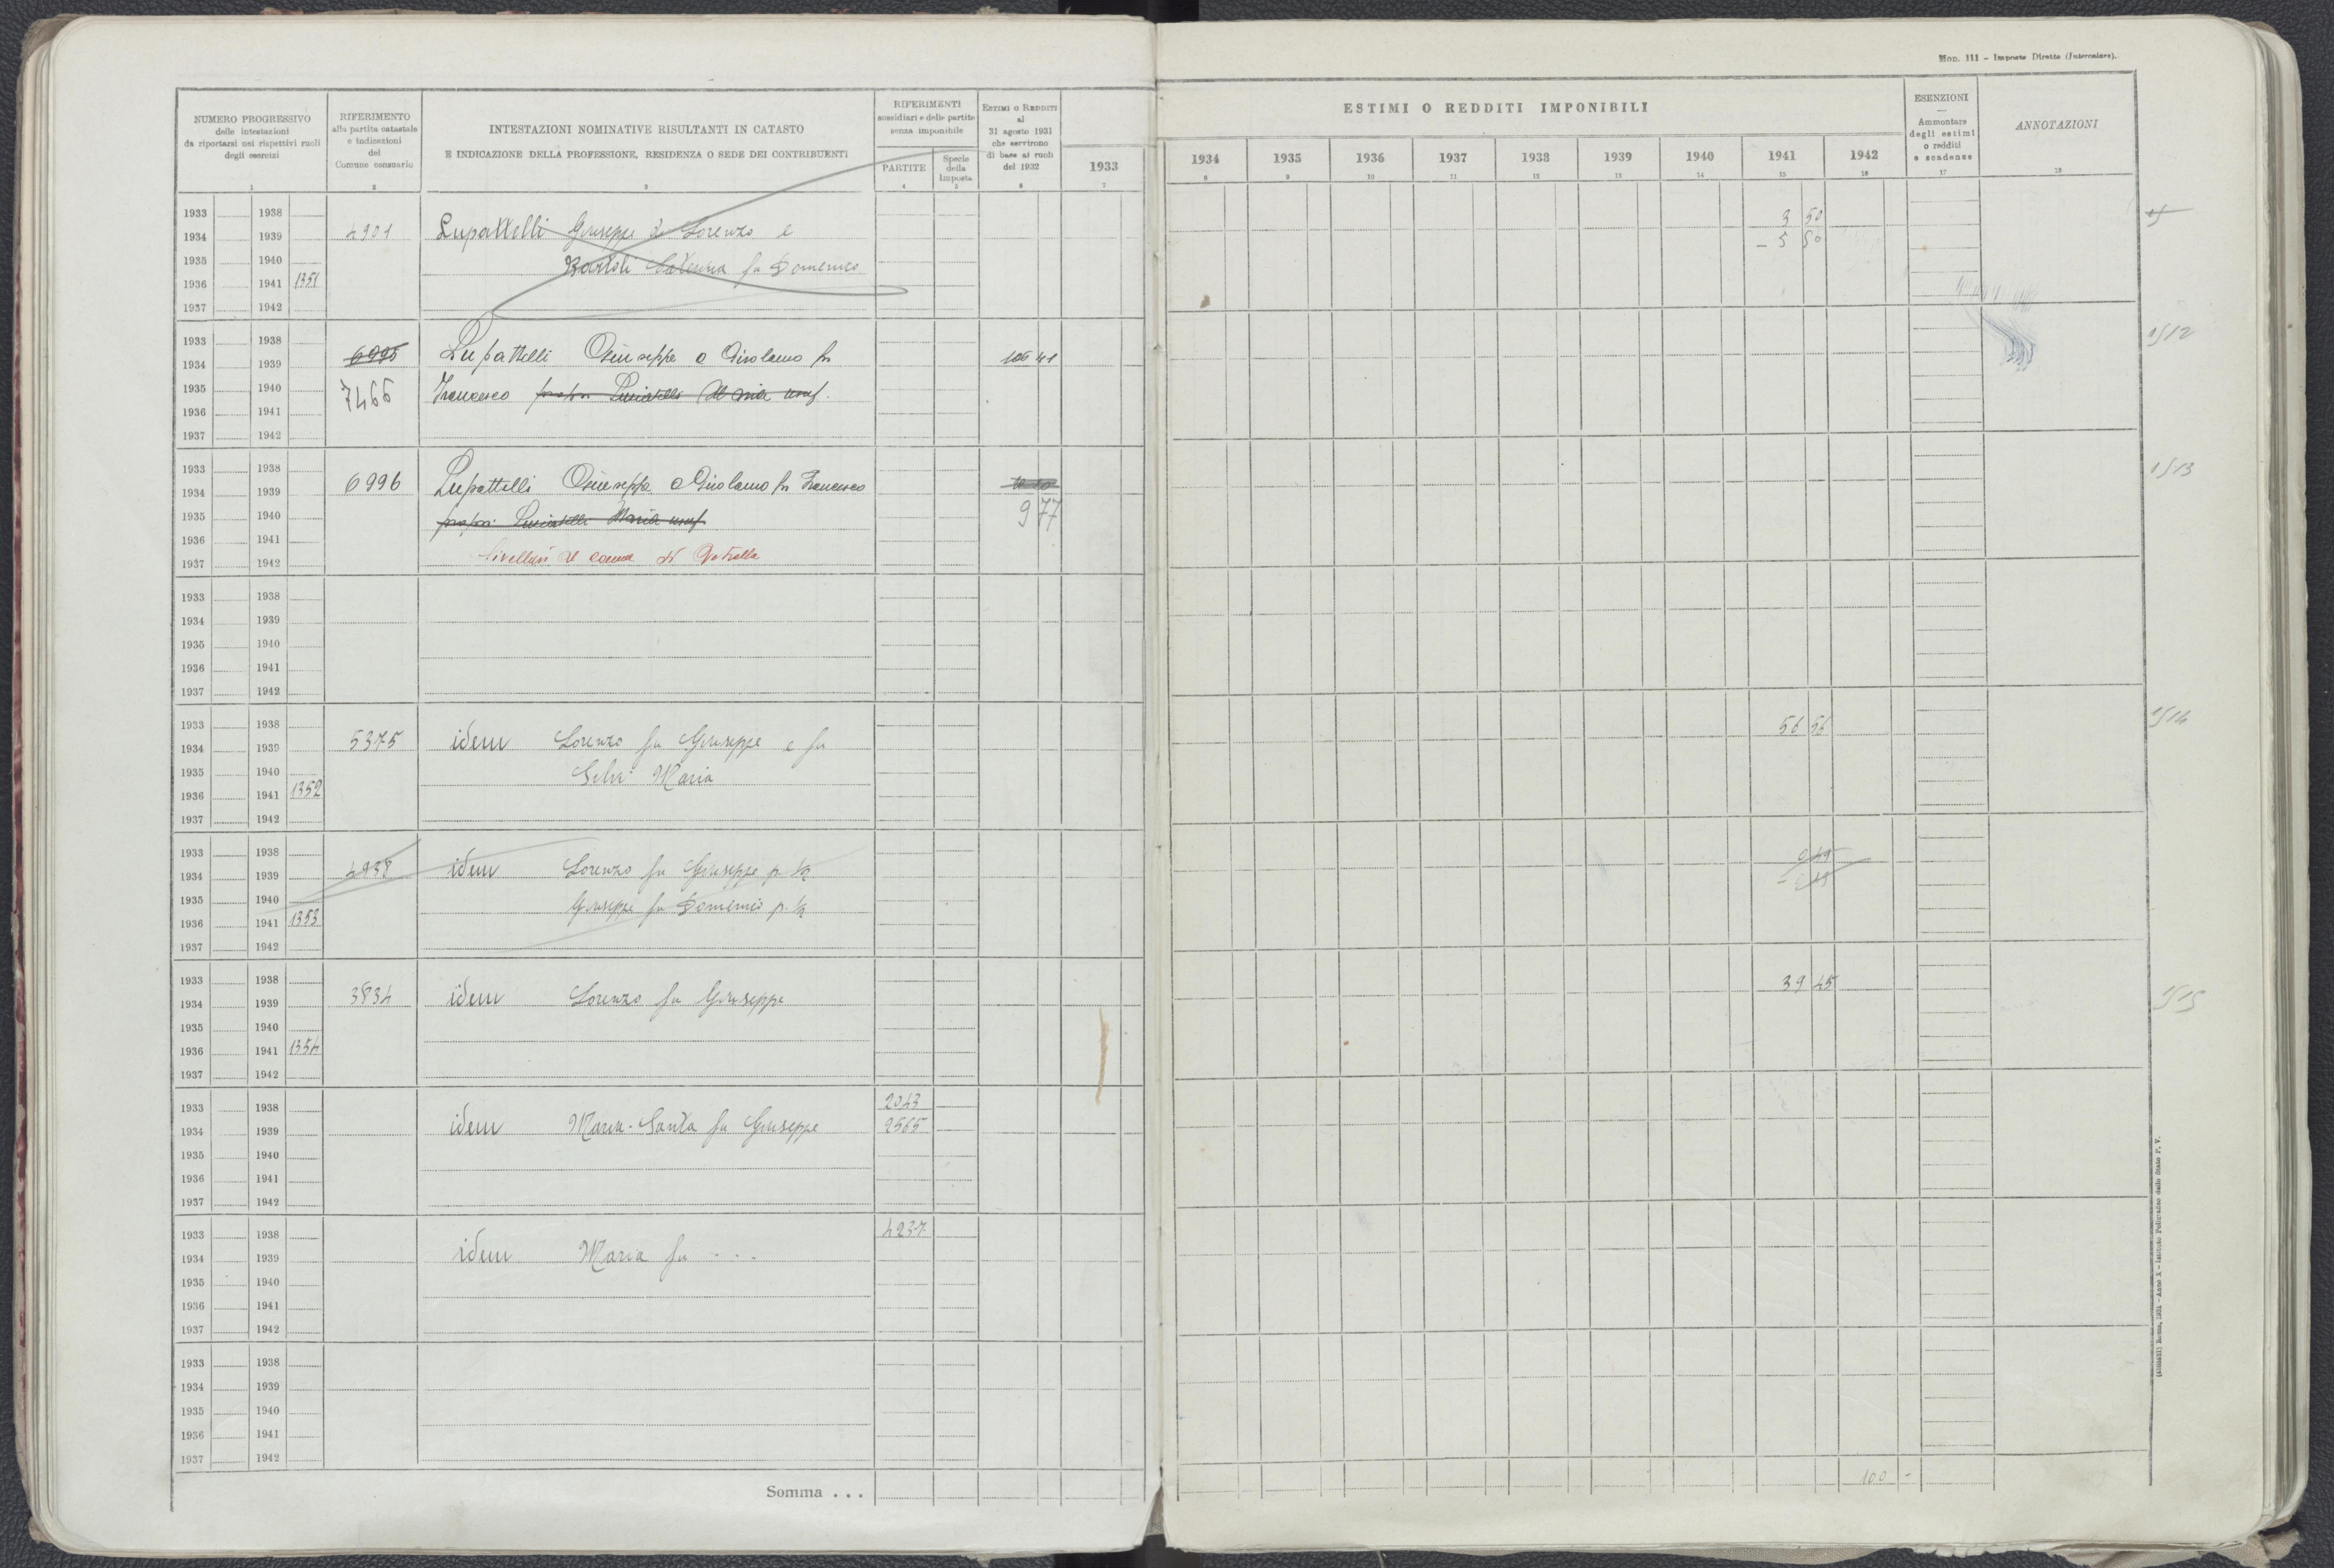 Mod. 111 - Imposte Dirette (Intercalare).
NUMERO PROGRESSIVO
delle intestazioni
da riportarsi nei rispettivi ruoli
degli esercizi
1
RIFERIMENTO
alla partita catastale
e indicazioni
del
Comune censuario
2
INTESTAZIONI NOMINATIVE RISULTANTI IN CATASTO
E INDICAZIONE DELLA PROFESSIONE, RESIDENZA O SEDE DEI CONTRIBUENTI
3
RIFERIMENTI
sussidiari e delle partite
senza imponibile
PARTITE
4
Specie
della
Imposta
5
ESTIMI O REDDITI
al
31 agosto 1931
che servirono
di base ai ruoli
del 1932
6
1933
7
ESTIMI O REDDITI IMPONIBILI
1934 1935 1936 1937 1938 1939 1940 1941 1942
8 9 10 11 12 13 14 15 16
ESENZIONI
—
Ammontare
degli estimi
o redditi
e scadenze
17
ANNOTAZIONI
18
1933 1938 3 50
1934 1939 4901 Lupattelli Giuseppe di Lorenzo e - 5 50
1935 1940 Bartoli Caterina fu Domenico
1936 1941 1351
1937 1942
1933 1938 1512
1934 1939 6995 Lupattelli Giuseppe e Girolamo fu 106 41
1935 1940 7466 Francesco
1936 1941
1937 1942
1933 1938 1513
1934 1939 6996 Lupattelli Giuseppe e Girolamo fu Francesco
1935 1940 Maria usuf 9 77
1936 1941
1937 1942 livellari al comune di Petrella
1933 1938
1934 1939
1935 1940
1936 1941
1937 1942
1933 1938 56 56 1514
1934 1939 5375 idem Lorenzo fu Giuseppe e fu
1935 1940 Maria
1936 1941 1352
1937 1942
1933 1938
1934 1939 4938 idem Lorenzo fu Giuseppe p. ½
1935 1940 Giuseppe fu Domenico p. ½
1936 1941 1353
1937 1942
1933 1938 39 45
1934 1939 3834 idem Lorenzo fu Giuseppe 1515
1935 1940
1936 1941 1354
1937 1942
1933 1938 2043
1934 1939 idem Maria-Santa fu Giuseppe 2565
1935 1940
1936 1941
1937 1942
1933 1938 4237
1934 1939 idem Maria fu - - -
1935 1940
1936 1941
1937 1942
1933 1938
1934 1939
1935 1940
1936 1941
1937 1942
Somma . . . 100 -
Roma, 1931 - Anno X - Istituto Poligrafico dello Stato P. V.